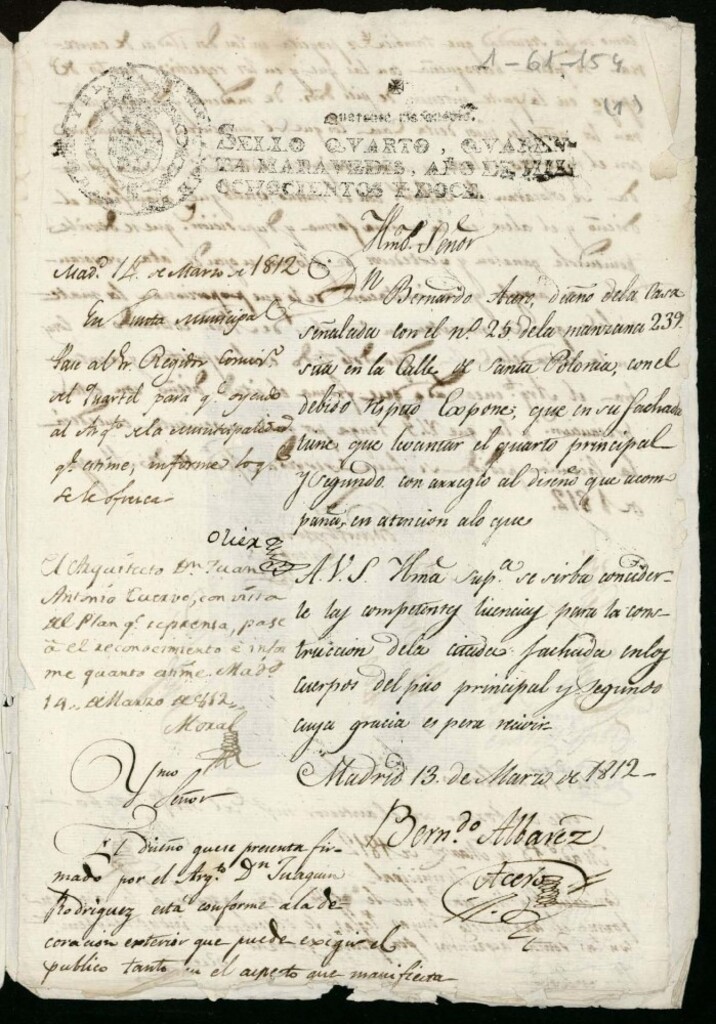 1-61-154
(1)
Quarenta maravedis.
SELLO QVARTO, QVAREN-
TA MARAVEDIS, AÑO DE MIL
OCHOCIENTOS Y DOCE.
Yllmo. Señor
Dn Bernardo Acero, dueño dela Casa
señalada con el nº. 25 dela manzana 239.
sita en la Calle de Santa Polonia, con el
debido respeto Expone; que en su fachada
tiene que levantar el quarto principal
y segundo con arreglo al diseño que acom-
paña, en atencion alo que
A. V. S. Yllma supca. se sirba conceder-
le las competentes licencias para la cons-
truccion dela citada fachada enlos
cuerpos del piso principal y segundo
cuya gracia espera recivir
Madrid 13. de Marzo de 1812-
Berndo Albarez
Acero
Madd. 14. de Marzo de 1812
En Junta Municipal
Pase al Sr. Regidor Comiso.
del Quartel para qe. oyendo
al Arqto. dela Municipalidad
qe. estime, informe lo qe.
se le ofrezca-
El Arquitecto Dn. Juan
Antonio Cuervo, con vista
del Plan qe. se presenta, pase
á el reconocimiento é infor
me quanto estime. Madd.
14. de Marzo de 812
Moral
Ymo
Señor
El diseño que se presenta fir-
mado por el Arqto. Dn Juaquin
Rodriguez está conforme ala de-
coracion exterior que puede exigir el
publico tanto en el aspecto que manifiesta